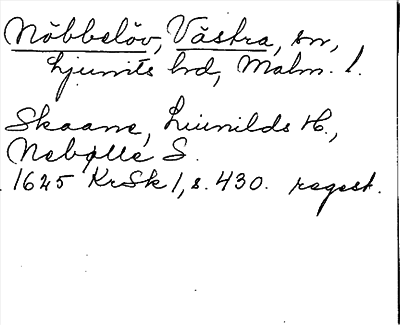 Nöbbelöv, Västra, sn,
Ljunits hd, Malm. l.
Skaane, Liunilds H.,
Nebølle S.
1625 KrSk 1, s. 430. regest.